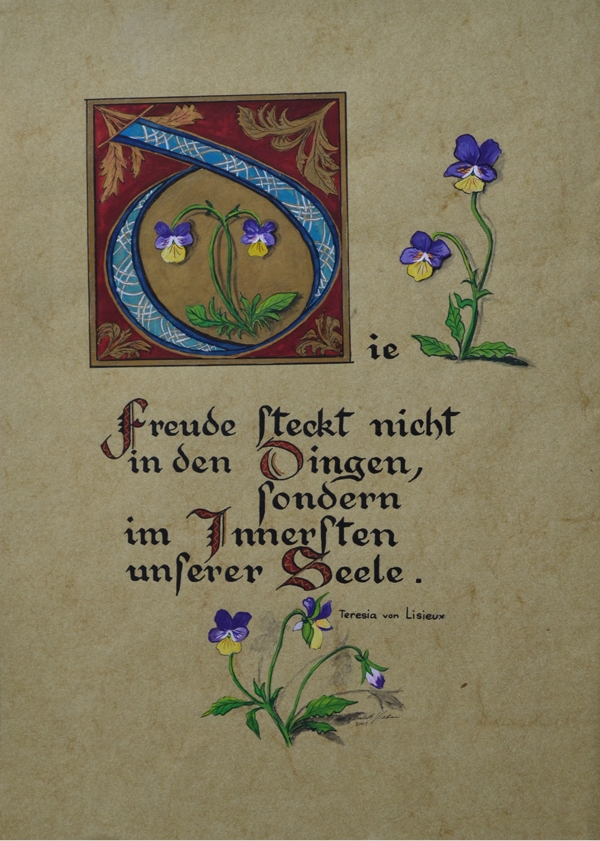 Die
Freude ſteckt nicht
in den Dingen,
ſondern
im Innerſten
unſerer Seele.
Teresia von Lisieux